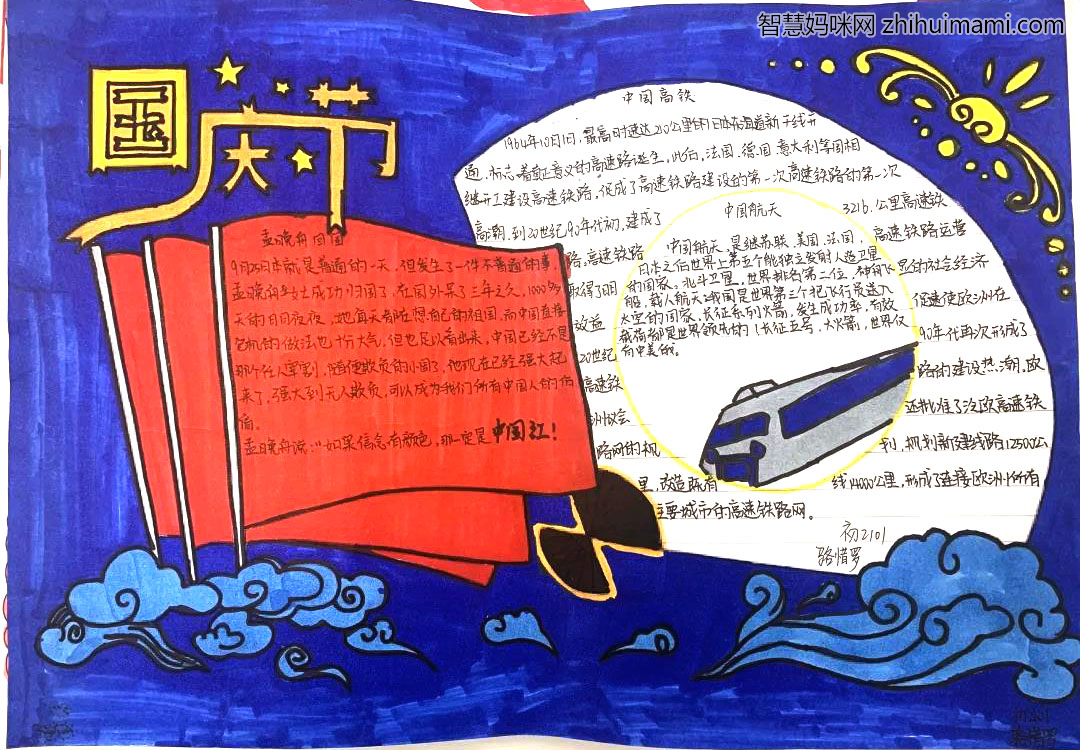 智慧妈咪网 zhihuimami.com
国庆节
孟晚舟回国
9月25日本就是普通的一天，但发生了一件不普通的事，
孟晚舟女士成功归国了，在国外呆了三年之久，1000多
天的日日夜夜，她每天都在思念自己的祖国，而中国直接
包机的做法也十份大气，但也足以看出来，中国已经不是
那个任人宰割，随便欺负的小国了，他现在已经强大起
来了，强大到无人欺负，可以成为我们所有中国人的后
盾。
孟晚舟说："如果信念有颜色，那一定是中国红！
中国高铁
1964年10月1日，最高时速达210公里的日本东海道新干线开
通，标志着真正意义的高速路诞生，此后，法国、德国、意大利等国相
继开工建设高速铁路，促成了高速铁路建设的第一次高速铁路的第一次
高潮，到20世纪90年代初，建成了 3216.公里高速铁
路，高速铁路 高速铁路运营
取得了明 显的社会经济
效益 低速使欧洲在
20世纪 90年代再次形成了
高速铁 路的建设热潮，欧
洲议会 还批准了泛欧高速铁
路网的机 划，规划新建线路12500公
里，改造既有 线14000公里，形成了连接欧洲所有
主要城市的高速铁路网。
中国航天
中国航天，是继苏联、美国、法国，
日本之后世界上第五个能独立发射人造卫星
的国家。北斗卫星，世界排名第二位，神舟飞
船，载人航天：我国是世界第三个把飞行员送入
太空的国家，长征系列火箭，发生成功率，有效
载荷都是世界领先的（长征五号，大火箭），世界仅
有中美俄。
初2101
骆惜罗